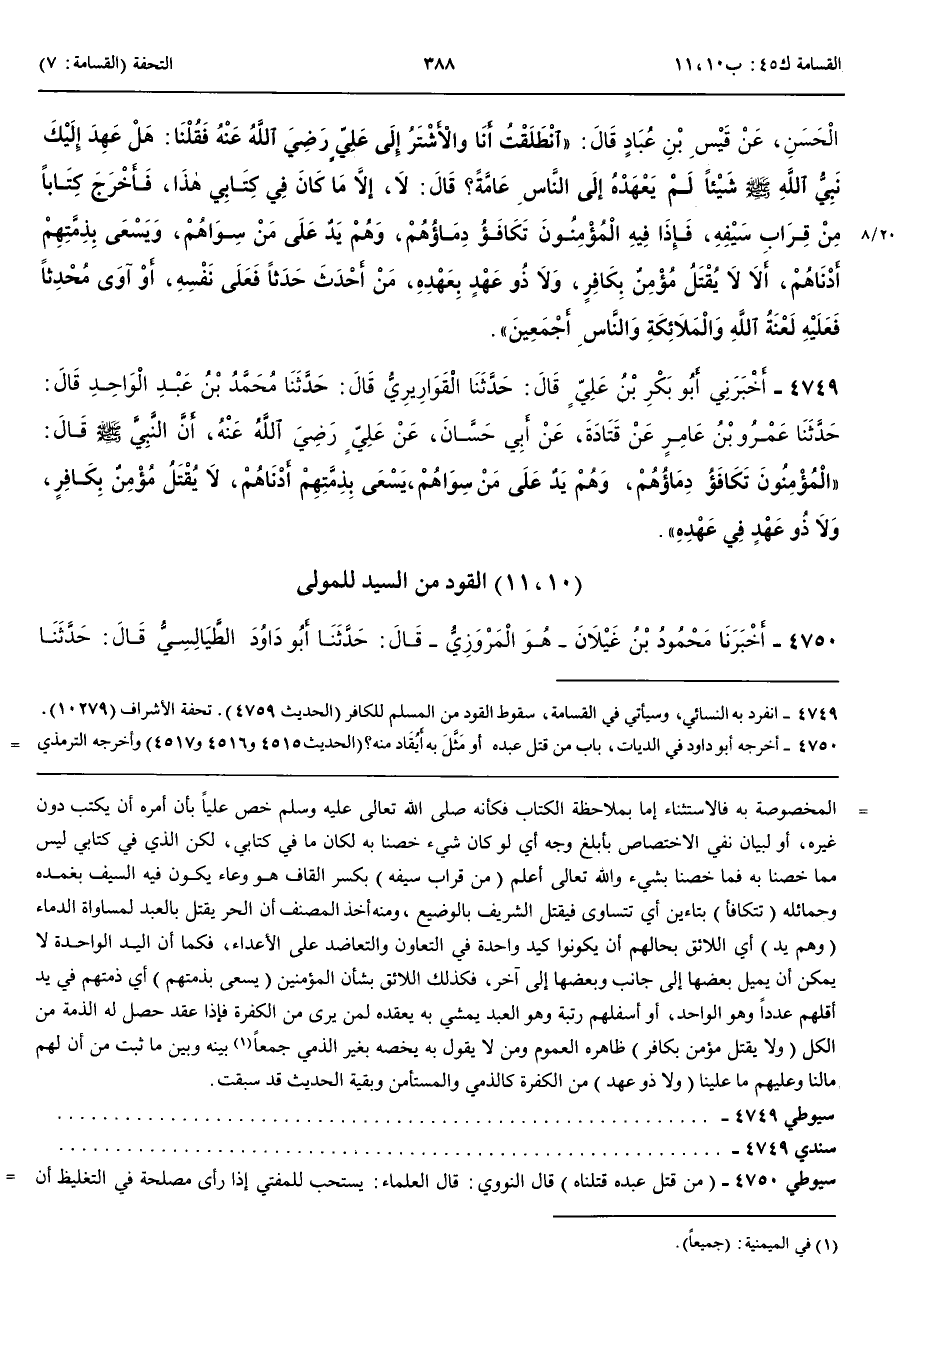 القسامة ك٤٥: ب١٠، ١١
٣٨٨
التحفة (القسامة: ٧)
الْحَسَنِ، عَنْ قَيْسِ بْنِ عُبَادٍ قَالَ: «ٱنْطَلَقْتُ أَنَا والْأَشْتَرُ إِلَى عَلِيٍّ رَضِيَ ٱللَّهُ عَنْهُ فَقُلْنَا: هَلْ عَهِدَ إِلَيْكَ
نَبِيُّ ٱللَّهِ ﷺ شَيْئاً لَـمْ يَعْهَدْهُ إلَى النَّاسِ عَامَّةً؟ قَالَ: لَا، إلَّا مَا كَانَ فِي كِتَابِي هٰذَا، فَـأَخْرَجَ كِتَـاباً
٨/٢٠
مِنْ قِـرَابِ سَيْفِهِ، فَـإِذَا فِيهِ الْمُؤْمِنُـونَ تَكَافَـؤُ دِمَـاؤُهُمْ، وَهُمْ يَدٌ عَلَى مَنْ سِـوَاهُمْ، وَيَسْعَى بِذِمَّتِهِمْ
أَدْنَاهُمْ، أَلَا لَا يُقْتَلُ مُؤْمِنٌ بِكَافِرٍ، وَلَا ذُو عَهْدٍ بِعَهْدِهِ، مَنْ أَحْدَثَ حَدَثاً فَعَلَى نَفْسِهِ، أَوْ آوَى مُحْدِثاً
فَعَلَيْهِ لَعْنَةُ ٱللَّهِ وَالْمَلَائِكَةِ وَالنَّاسِ أَجْمَعِينَ».
٤٧٤٩ - أَخْبَرَنِي أَبُو بَكْرِ بْنُ عَلِيٍّ قَالَ: حَدَّثَنَا الْقَوَارِيرِيُّ قَالَ: حَدَّثَنَا مُحَمَّدُ بْنُ عَبْـدِ الْوَاحِـدِ قَالَ:
حَدَّثَنَا عَمْـرُو بْنُ عَامِـرٍ عَنْ قَتَادَةَ، عَنْ أَبِي حَسَّـانَ، عَنْ عَلِيٍّ رَضِيَ ٱللَّهُ عَنْهُ، أَنَّ النَّبِيَّ ﷺ قَـالَ:
«الْمُؤْمِنُونَ تَكَافَؤُ دِمَاؤُهُمْ، وَهُمْ يَدٌ عَلَى مَنْ سِوَاهُمْ،يَسْعَى بِذِمَّتِهِمْ أَدْنَاهُمْ، لَا يُقْتَلُ مُؤْمِنٌ بِكَـافِرٍ،
وَلَا ذُو عَهْدٍ فِي عَهْدِهِ».
(١٠، ١١) القود من السيد للمولى
٤٧٥٠ - أَخْبَرَنَا مَحْمُودُ بْنُ غَيْلَانَ - هُـوَ الْمَرْوَزِيُّ - قَـالَ: حَدَّثَنَـا أَبُو دَاوُدَ الطَّيَالِسِـيُّ قَـالَ: حَدَّثَنَـا
٤٧٤٩ - انفرد به النسائي، وسيأتي في القسامة، سقوط القود من المسلم للكافر (الحديث ٤٧٥٩). تحفة الأشراف (١٠٢٧٩).
٤٧٥٠ - أخرجه أبو داود في الديات، باب من قتل عبده أو مَثَّلَ به أَيُقَاد منه؟ (الحديث ٤٥١٥ و٤٥١٦ و٤٥١٧) وأخرجه الترمذي =
= المخصوصة به فالاستثناء إما بملاحظة الكتاب فكأنه صلى الله تعالى عليه وسلم خص علياً بأن أمره أن يكتب دون
غيره، أو لبيان نفي الاختصاص بأبلغ وجه أي لو كان شيء خصنا به لكان ما في كتابي، لكن الذي في كتابي ليس
مما خصنا به فما خصنا بشيء والله تعالى أعلم ( من قراب سيفه ) بكسر القاف هـو وعاء يكـون فيه السيف بغمـده
وحمائله ( تتكافأ ) بتاءين أي تتساوى فيقتل الشريف بالوضيع ،ومنه أخذ المصنف أن الحر يقتل بالعبد لمساواة الدماء
( وهم يد ) أي اللائق بحالهم أن يكونوا كيد واحدة في التعاون والتعاضد على الأعداء، فكما أن اليـد الواحـدة لا
يمكن أن يميل بعضها إلى جانب وبعضها إلى آخر، فكذلك اللائق بشأن المؤمنين ( يسعى بذمتهم ) أي ذمتهم في يد
أقلهم عدداً وهو الواحد، أو أسفلهم رتبة وهو العبد يمشي به يعقده لمن يرى من الكفرة فإذا عقد حصل له الذمة من
الكل ( ولا يقتل مؤمن بكافر ) ظاهره العموم ومن لا يقول به يخصه بغير الذمي جمعاً(١) بينه وبين ما ثبت من أن لهم
مالنا وعليهم ما علينا ( ولا ذو عهد ) من الكفرة كالذمي والمستأمن وبقية الحديث قد سبقت.
سيوطي ٤٧٤٩ - . . . . . . . . . . . . . . . . . . . . . . . . . . . . . . . . . . . . . . . . . . . . . . . . . . . . . . . .
سندي ٤٧٤٩ - . . . . . . . . . . . . . . . . . . . . . . . . . . . . . . . . . . . . . . . . . . . . . . . . . . . . . . . .
سيوطي ٤٧٥٠ - ( من قتل عبده قتلناه ) قال النووي: قال العلماء: يستحب للمفتي إذا رأى مصلحة في التغليظ أن =
(١) في الميمنية: (جميعاً).